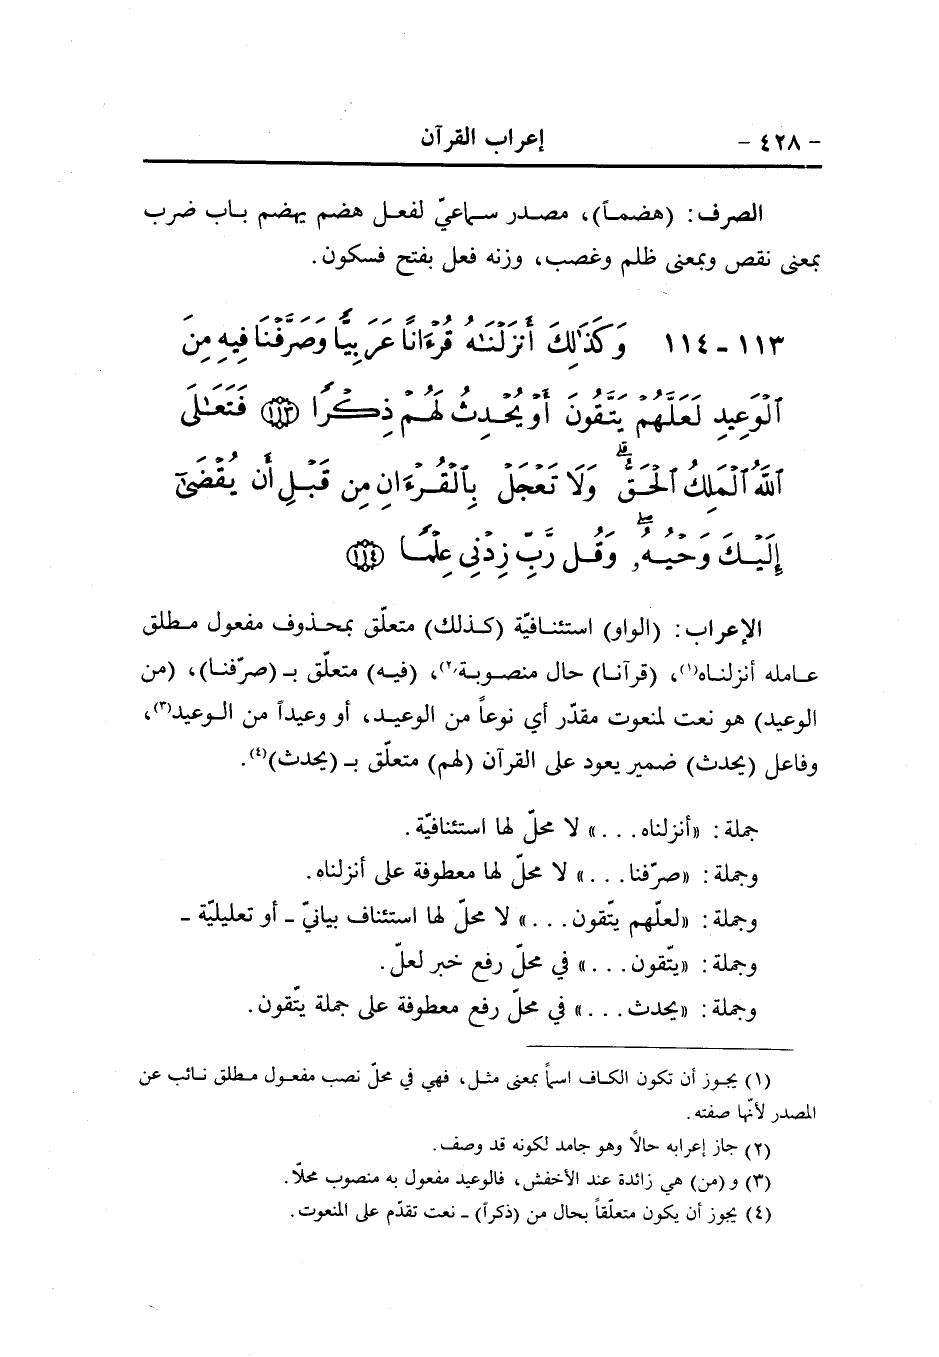 - ٤٢٨ - إعراب القرآن
الصرف: (هضماً)، مصدر سماعيّ لفعل هضم يهضم باب ضرب
بمعنى نقص وبمعنى ظلم وغصب، وزنه فعل بفتح فسكون.
١١٣ - ١١٤ وَكَذَٰلِكَ أَنزَلْنَٰهُ قُرْءَانًا عَرَبِيًّا وَصَرَّفْنَا فِيهِ مِنَ
ٱلْوَعِيدِ لَعَلَّهُمْ يَتَّقُونَ أَوْ يُحْدِثُ لَهُمْ ذِكْرًا ١١٣ فَتَعَٰلَى
ٱللَّهُ ٱلْمَلِكُ ٱلْحَقُّ ۗ وَلَا تَعْجَلْ بِٱلْقُرْءَانِ مِن قَبْلِ أَن يُقْضَىٰٓ
إِلَيْكَ وَحْيُهُۥ ۖ وَقُل رَّبِّ زِدْنِى عِلْمًا ١١٤
الإعراب: (الواو) استئنافيّة (كذلك) متعلّق بمحذوف مفعول مطلق
عامله أنزلناه(١)، (قرآنا) حال منصوبة(٢)، (فيه) متعلّق بـ (صرّفنا)، (من
الوعيد) هو نعت لمنعوت مقدّر أي نوعاً من الوعيد، أو وعيداً من الوعيد(٣)،
وفاعل (يحدث) ضمير يعود على القرآن (لهم) متعلّق بـ (يحدث)(٤).
جملة: «أنزلناه...» لا محلّ لها استئنافيّة.
وجملة: «صرّفنا...» لا محلّ لها معطوفة على أنزلناه.
وجملة: «لعلّهم يتّقون...» لا محلّ لها استئناف بيانيّ - أو تعليليّة -
وجملة: «يتّقون...» في محلّ رفع خبر لعلّ.
وجملة: «يحدث...» في محلّ رفع معطوفة على جملة يتّقون.
(١) يجوز أن تكون الكاف اسماً بمعنى مثل، فهي في محلّ نصب مفعول مطلق نائب عن
المصدر لأنّها صفته.
(٢) جاز إعرابه حالاً وهو جامد لكونه قد وصف.
(٣) و (من) هي زائدة عند الأخفش، فالوعيد مفعول به منصوب محلّا.
(٤) يجوز أن يكون متعلّقاً بحال من (ذكراً) - نعت تقدّم على المنعوت.